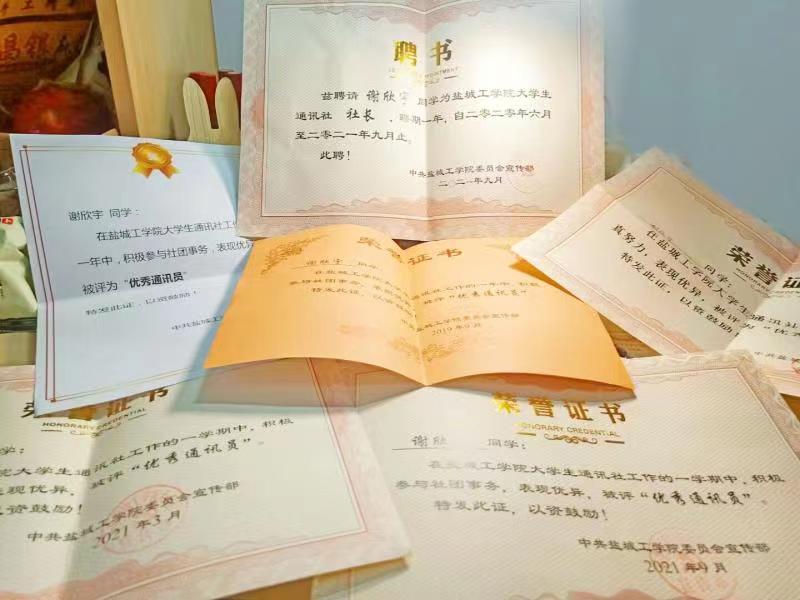 聘书
兹聘请 谢欣宇 同学为盐城工学院大学生
通讯社 社长 ,聘期一年,自二零二零年六月
至二零二一年九月止。
此聘!
中共盐城工学院委员会宣传部
二〇二一年九月
谢欣宇 同学:
在盐城工学院大学生通讯社工作
一年中,积极参与社团事务,表现优异
被评为“优秀通讯员”
特发此证,以资鼓励!
中共盐城工
荣誉证书
谢欣宇 同学:
在盐城工学院大学生通讯社工作的一年中,积极
参与社团事务,表现优异,被评“优秀通讯员”
特发此证,以资鼓励!
中共盐城工学院委员会宣传部
2019年9月
荣誉证
HONORARY
同学:
在盐城工学院大学生通讯社
真努力,表现优异,被评为“优
特发此证,以资鼓励!
中共盐城工学院
荣誉证书
HONORARY CREDENTIAL
学:
通讯社工作的一学期中,积极
表现优异,被评“优秀通讯员”。
以资鼓励!
中共盐城工学院委员会宣传部
2021年3月
荣誉证书
HONORARY CREDENTIAL
谢欣 同学:
在盐城工学院大学生通讯社工作的一学期中,积极
参与社团事务,表现优异,被评“优秀通讯员”。
特发此证,以资鼓励!
中共盐城工学院委员会宣传部
2021年9月